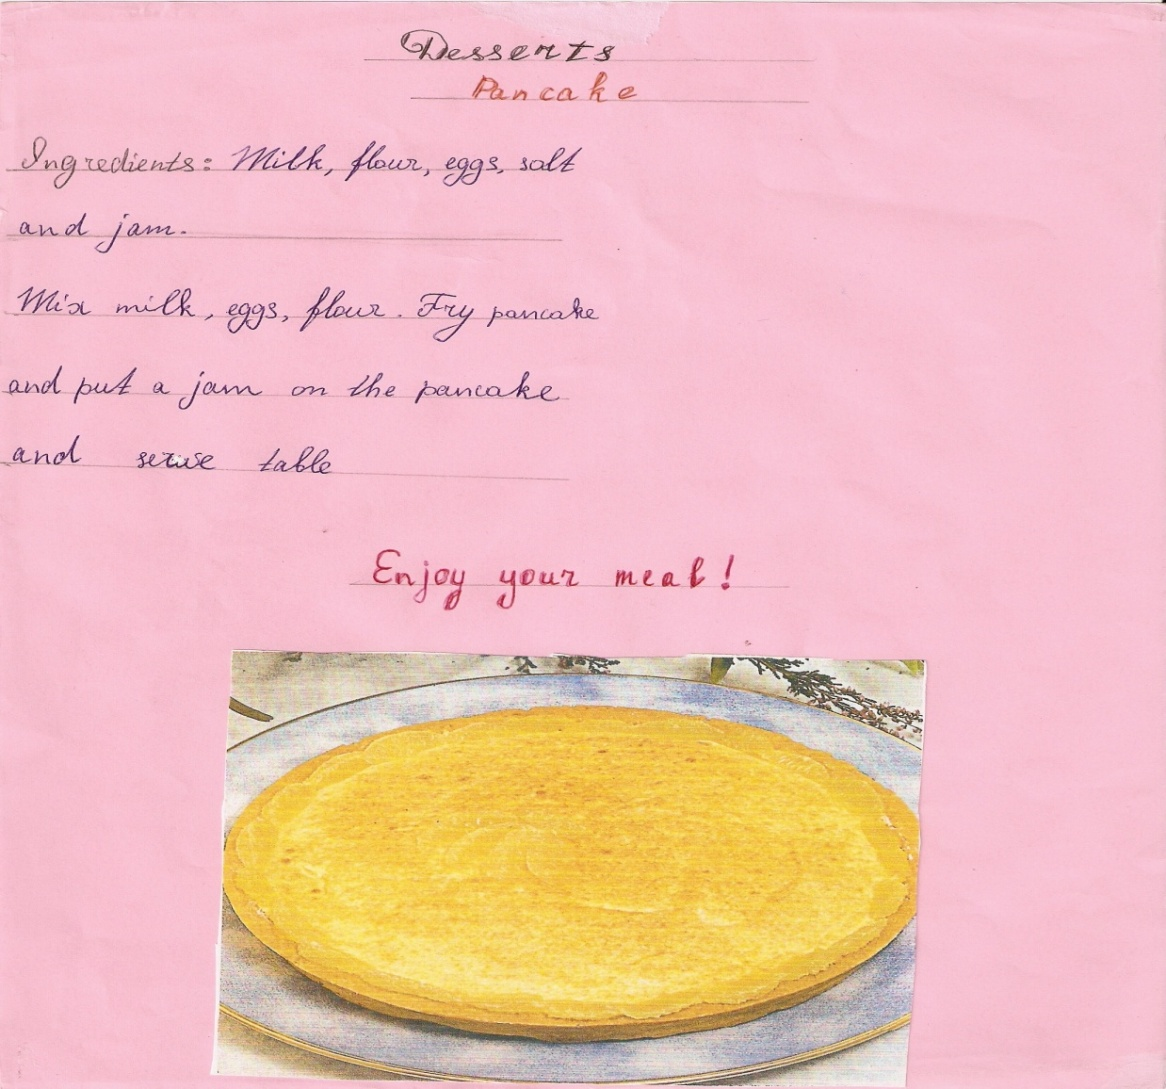 Desserts
Pancake
Ingredients: Milk, flour, eggs, salt
and jam.
Mix milk, eggs, flour. Fry pancake
and put a jam on the pancake
and serve table
Enjoy your meal!